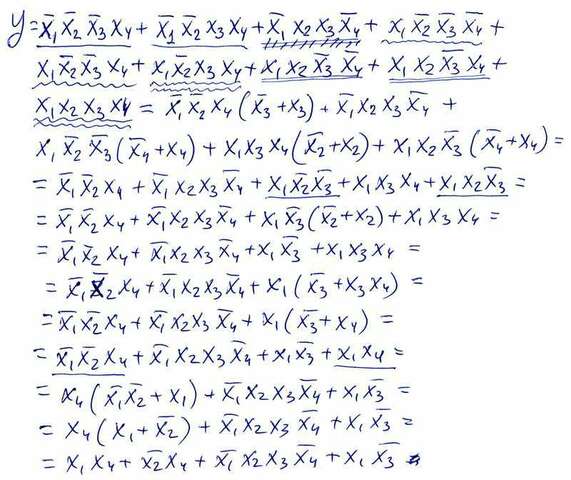 y = x̄₁ x̄₂ x̄₃ x₄ + x̄₁ x̄₂ x₃ x₄ + x̄₁ x₂ x₃ x̄₄ + x₁ x̄₂ x̄₃ x̄₄ +
x₁ x̄₂ x̄₃ x₄ + x₁ x̄₂ x₃ x₄ + x₁ x₂ x̄₃ x̄₄ + x₁ x₂ x̄₃ x₄ +
x₁ x₂ x₃ x₄ = x̄₁ x̄₂ x₄ (x̄₃ + x₃) + x̄₁ x₂ x₃ x̄₄ +
x₁ x̄₂ x̄₃ (x̄₄ + x₄) + x₁ x₃ x₄ (x̄₂ + x₂) + x₁ x₂ x̄₃ (x̄₄ + x₄) =
= x̄₁ x̄₂ x₄ + x̄₁ x₂ x₃ x̄₄ + x₁ x̄₂ x̄₃ + x₁ x₃ x₄ + x₁ x₂ x̄₃ =
= x̄₁ x̄₂ x₄ + x̄₁ x₂ x₃ x̄₄ + x₁ x̄₃ (x̄₂ + x₂) + x₁ x₃ x₄ =
= x̄₁ x̄₂ x₄ + x̄₁ x₂ x₃ x̄₄ + x₁ x̄₃ + x₁ x₃ x₄ =
= x̄₁ x̄₂ x₄ + x̄₁ x₂ x₃ x̄₄ + x₁ (x̄₃ + x₃ x₄) =
= x̄₁ x̄₂ x₄ + x̄₁ x₂ x₃ x̄₄ + x₁ (x̄₃ + x₄) =
= x̄₁ x̄₂ x₄ + x̄₁ x₂ x₃ x̄₄ + x₁ x̄₃ + x₁ x₄ =
= x₄ (x̄₁ x̄₂ + x₁) + x̄₁ x₂ x₃ x̄₄ + x₁ x̄₃ =
= x₄ (x₁ + x̄₂) + x̄₁ x₂ x₃ x̄₄ + x₁ x̄₃ =
= x₁ x₄ + x̄₂ x₄ + x̄₁ x₂ x₃ x̄₄ + x₁ x̄₃